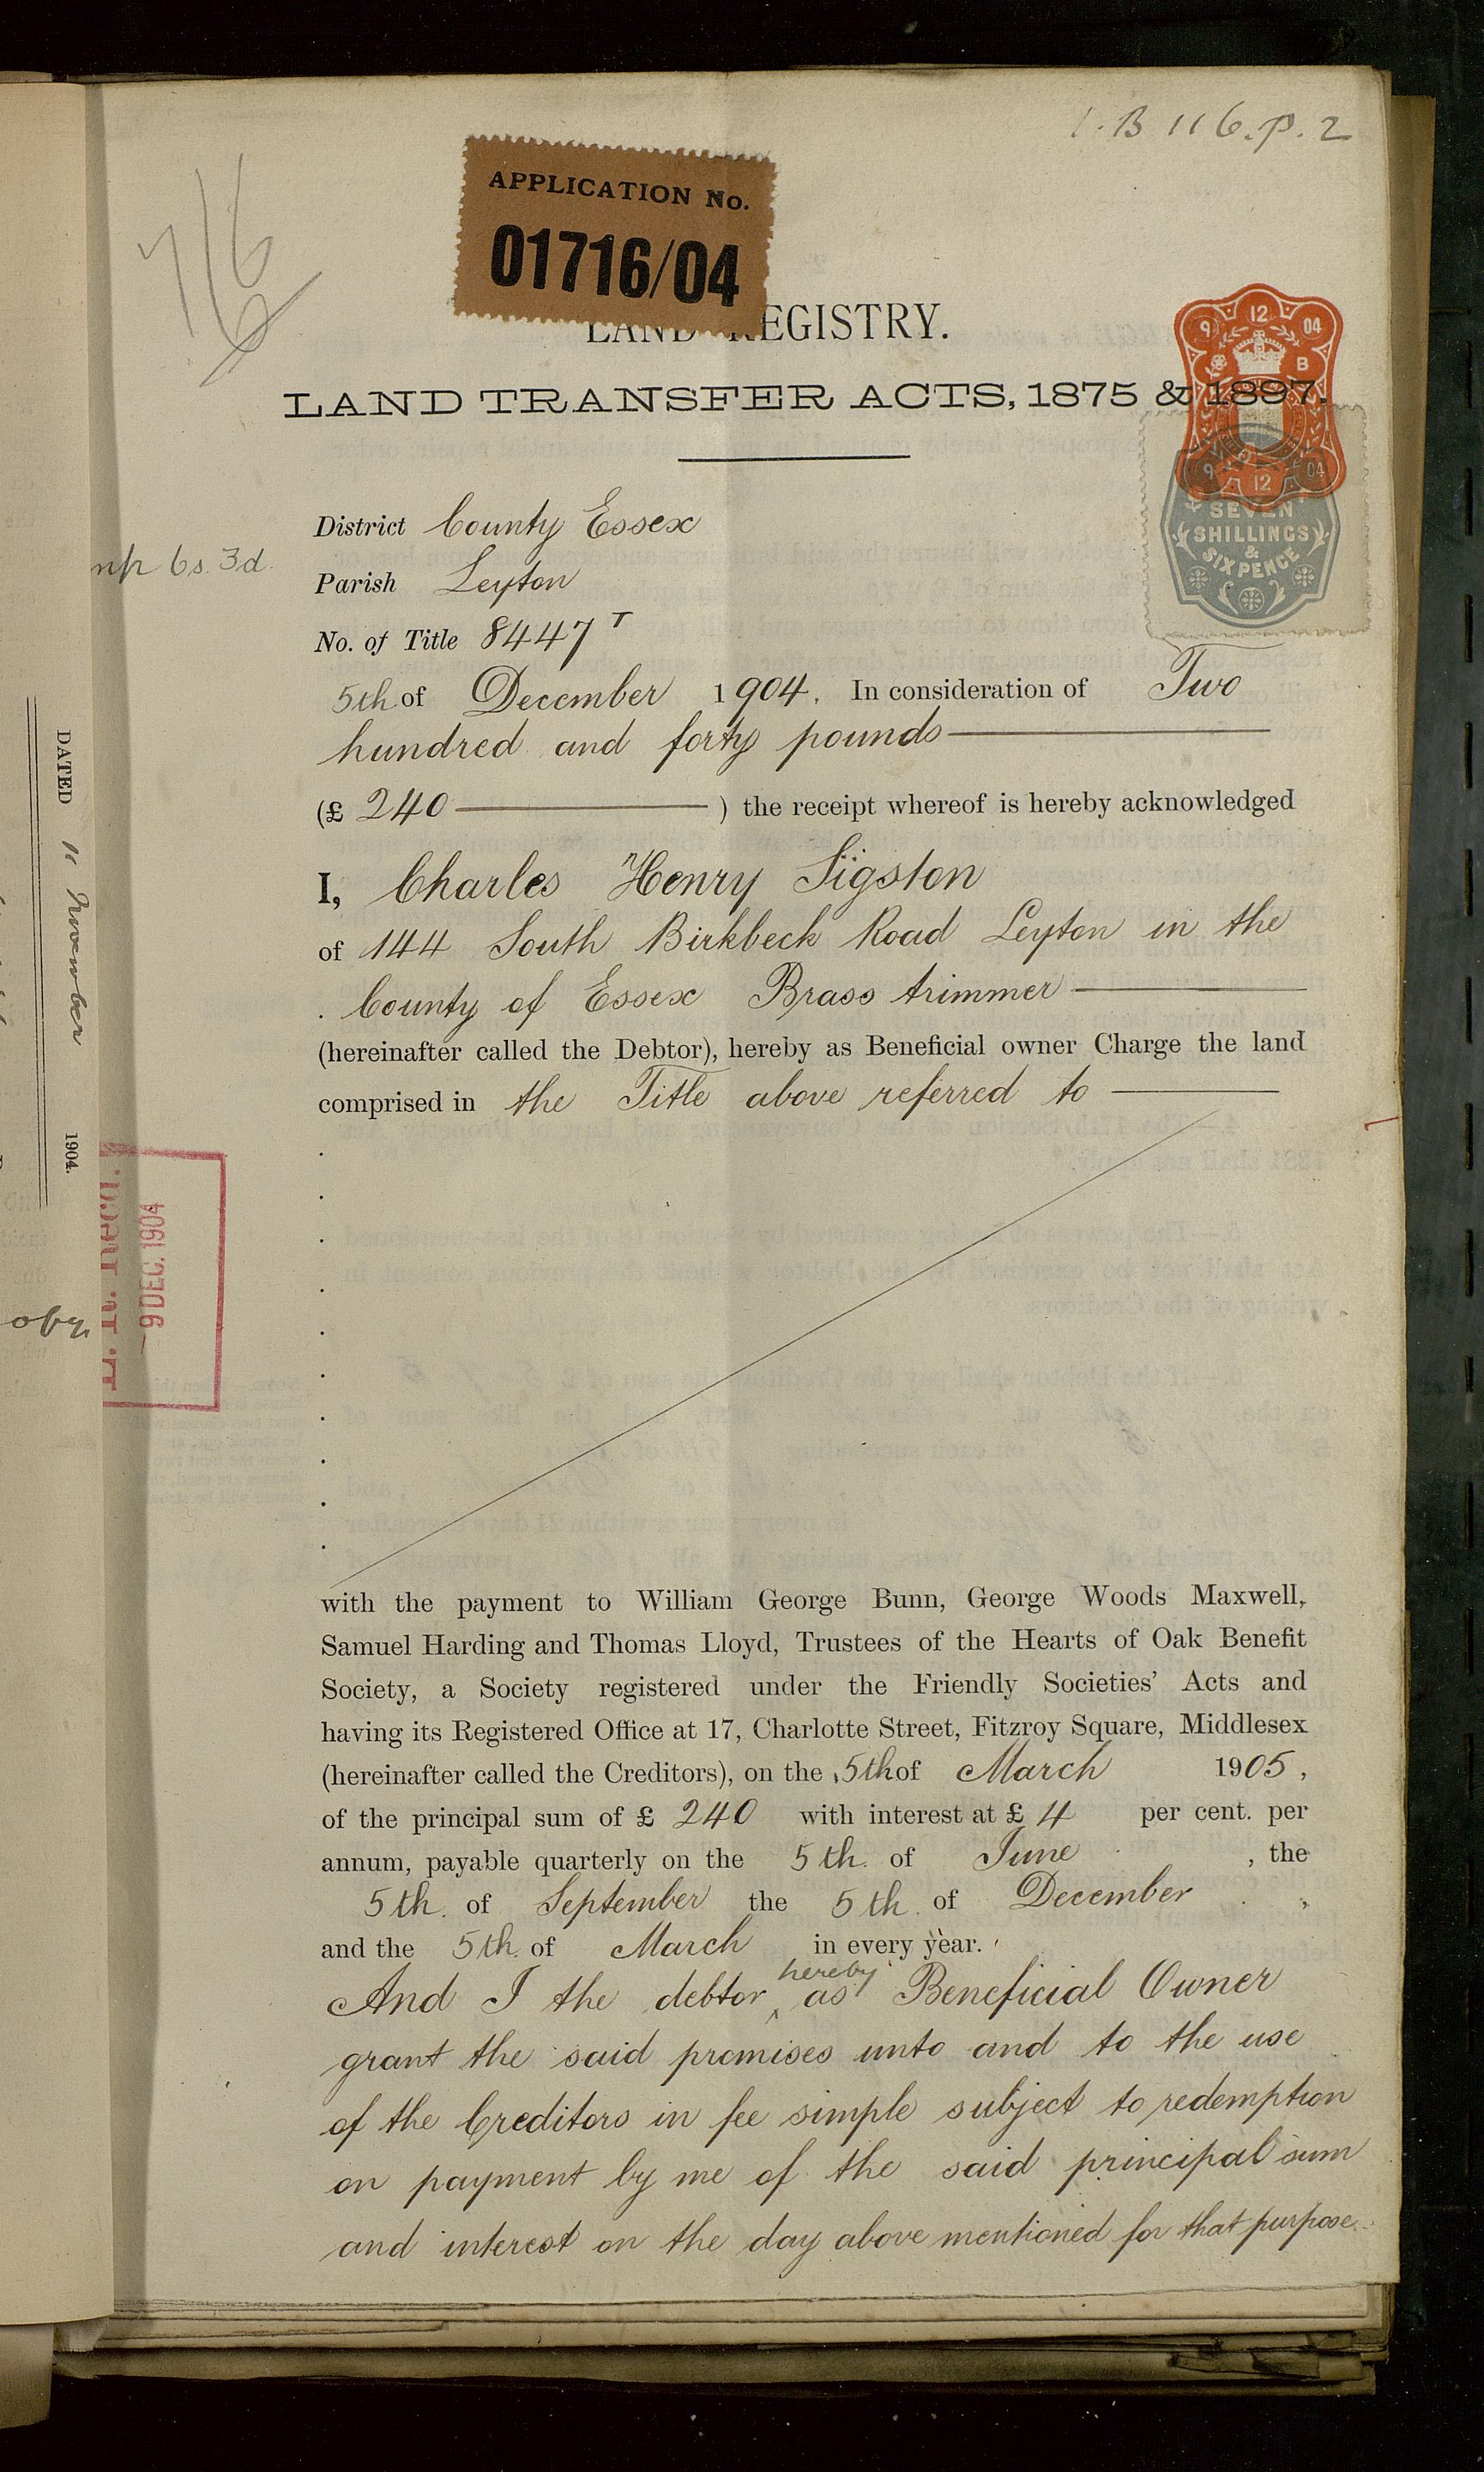 1.B 116.p.2
APPLICATION No.
01716/04
LAND REGISTRY.
LAND TRANSFER ACTS, 1875 & 1897.
9 12 04
B
9 12 04
SEVEN
SHILLINGS
&
SIXPENCE
6s. 3d.
District County Essex
Parish Leyton
No. of Title 8447 T
5th of December 1904. In consideration of Two
hundred and forty pounds
(£ 240 ) the receipt whereof is hereby acknowledged
I, Charles Henry Sigston
of 144 South Birkbeck Road Leyton in the
County of Essex Brass trimmer
(hereinafter called the Debtor), hereby as Beneficial owner Charge the land
comprised in the Title above referred to
with the payment to William George Bunn, George Woods Maxwell,
Samuel Harding and Thomas Lloyd, Trustees of the Hearts of Oak Benefit
Society, a Society registered under the Friendly Societies' Acts and
having its Registered Office at 17, Charlotte Street, Fitzroy Square, Middlesex
(hereinafter called the Creditors), on the 5th of March 1905,
of the principal sum of £ 240 with interest at £ 4 per cent. per
annum, payable quarterly on the 5th. of June , the
5th. of September the 5th. of December ,
and the 5th. of March in every year.
And I the debtor hereby as Beneficial Owner
grant the said premises unto and to the use
of the Creditors in fee simple subject to redemption
on payment by me of the said principal sum
and interest on the day above mentioned for that purpose.
DATED 11 November 1904.
9 DEC. 1904